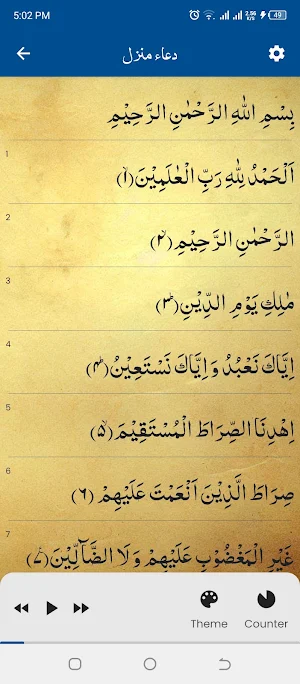 5:02 PM 2.56 K/s 49
دعاء منزل
بِسْمِ اللّٰهِ الرَّحْمٰنِ الرَّحِيْمِ
1
اَلْحَمْدُ لِلّٰهِ رَبِّ الْعٰلَمِيْنَ(۱)
2
الرَّحْمٰنِ الرَّحِيْمِ(۲)
3
مٰلِكِ يَوْمِ الدِّيْنِ(۳)
4
اِيَّاكَ نَعْبُدُ وَ اِيَّاكَ نَسْتَعِيْنُ(۴)
5
اِهْدِنَا الصِّرَاطَ الْمُسْتَقِيْمَ(۵)
6
صِرَاطَ الَّذِيْنَ اَنْعَمْتَ عَلَيْهِمْ(۶)
7
غَيْرِ الْمَغْضُوْبِ عَلَيْهِمْ وَ لَا الضَّآلِّيْنَ(۷)
Theme Counter